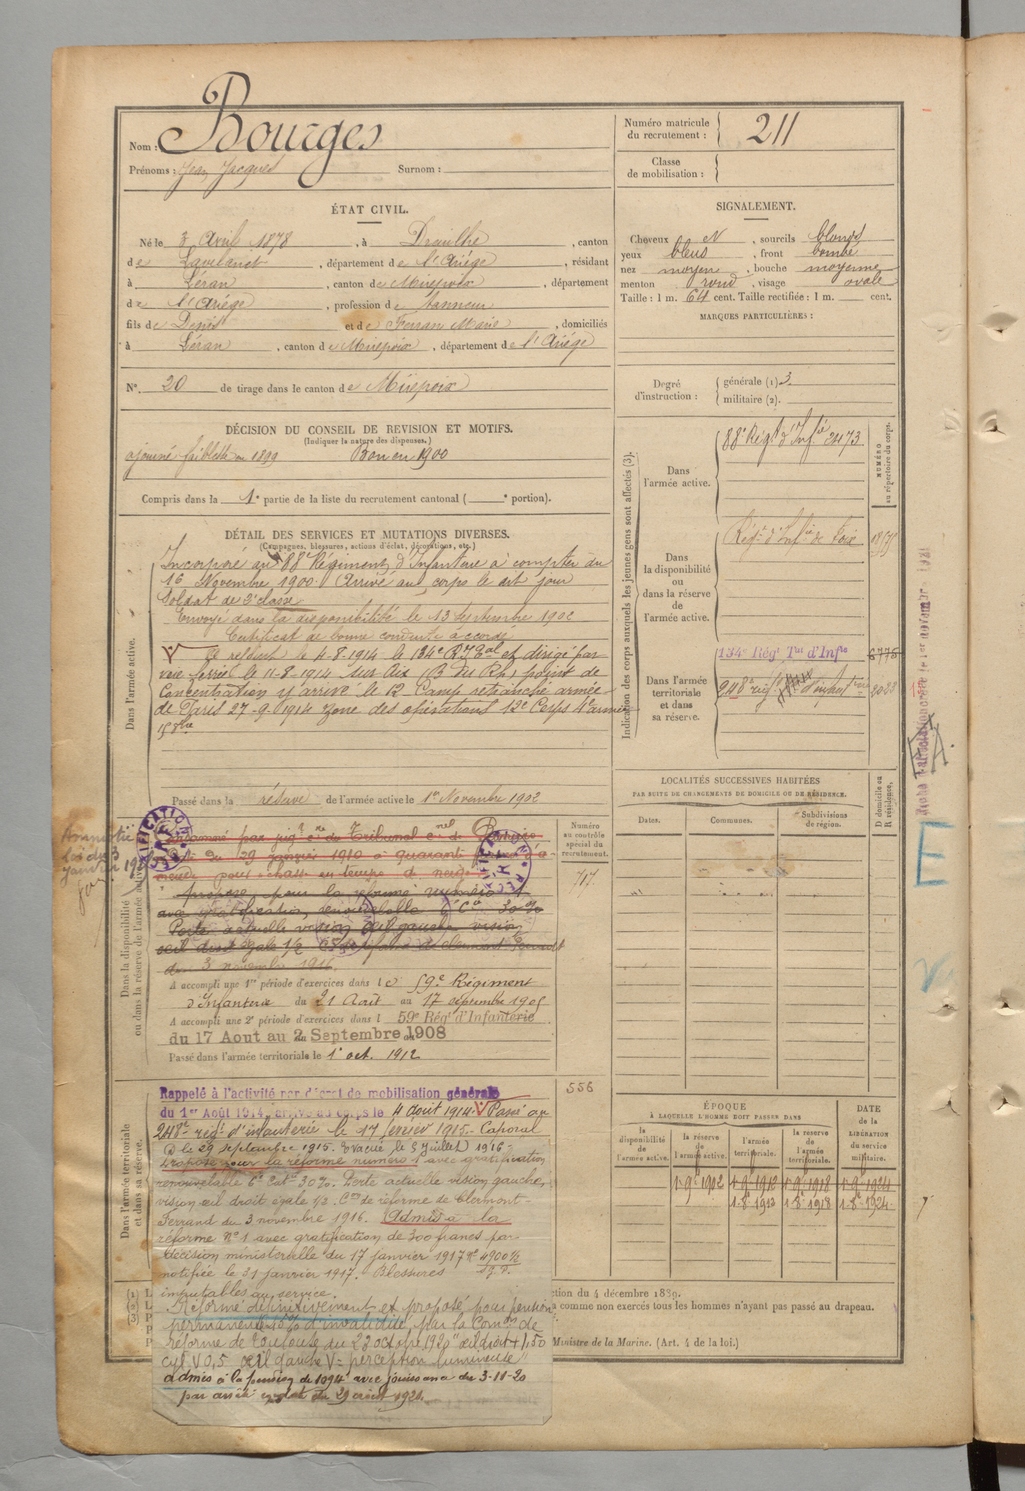 Nom : Bourges
Prénoms : Jean Jacques Surnom :
Numéro matricule du recrutement : 211
Classe de mobilisation :
ÉTAT CIVIL.
Né le 3 Avril 1878, à Dreuilhe, canton
de Lavelanet, département de l'Ariége, résidant
à Léran, canton de Mirepoix, département
de l'Ariége, profession de Tanneur
fils de Denis et de Ferran Marie, domiciliés
à Léran, canton de Mirepoix, département de l'Ariége
N° 20 de tirage dans le canton de Mirepoix
SIGNALEMENT.
Cheveux N, sourcils blonds
yeux bleus, front bombé
nez moyen, bouche moyenne
menton rond, visage ovale
Taille : 1 m. 64 cent. Taille rectifiée : 1 m. cent.
MARQUES PARTICULIÈRES :
Degré d'instruction : générale (1) 3
militaire (2).
DÉCISION DU CONSEIL DE REVISION ET MOTIFS.
(Indiquer la nature des dispenses.)
ajourné faiblesse en 1899 Bon en 1900
Compris dans la 1e partie de la liste du recrutement cantonal ( e portion).
DÉTAIL DES SERVICES ET MUTATIONS DIVERSES.
(Campagnes, blessures, actions d'éclat, décorations, etc.)
Dans l'armée active.
Incorporé au 88e Régiment d'Infanterie à compter du
16 Novembre 1900. Arrivé au corps le dit jour
Soldat de 2e classe
Envoyé dans la disponibilité le 13 Septembre 1902
Certificat de bonne conduite accordé
le 4-8-1914 le 134e R.I. Tal et dirigé par
voie ferrée le 11-8-1914 sur Aix (B du Rh) point de
Concentration y arrive le 12 Camp retranché armée
de Paris 27-9-1914 zone des opérations 12e Corps 4e armée
Passé dans la réserve de l'armée active le 1er Novembre 1902
Dans la disponibilité ou dans la réserve de l'armée active.
Amnistié
loi du 3
janvier
Condamné par jugt du Tribunal de
du 29 janvier 1910 à quarante francs d'a-
mende pour chasse en temps de neige
proposé pour la réforme numéro 1
avec gratification renouvelable 6e Cie 30%
Perte actuelle vision œil gauche vision
œil droit égale 1/2 de réforme de Clermont Ferrand
du 3 novembre 1916.
A accompli une 1re période d'exercices dans le 59e Régiment
d'Infanterie du 21 Août au 17 septembre 1905
A accompli une 2e période d'exercices dans l 59e Régt d'Infanterie
du 17 Aout au 2 Septembre 1908
Passé dans l'armée territoriale le 1er oct. 1912
Numéro au contrôle spécial du recrutement.
717
556
Dans l'armée territoriale et dans sa réserve.
Rappelé à l'activité par décret de mobilisation générale
du 1er Août 1914, arrivé au corps le 4 août 1914. Passé au
248e régt d'infanterie le 17 février 1915. Caporal
le 29 septembre 1915. Evacué le 5 Juillet 1916.
Proposé pour la réforme numéro 1 avec gratification
renouvelable 6e Cat 30%. Perte actuelle vision gauche,
vision œil droit égale 1/2. Con de réforme de Clermont-
Ferrand du 3 novembre 1916. Admis à la
réforme N° 1 avec gratification de 300 francs par
décision ministerielle du 17 janvier 1917
notifiée le 31 janvier 1917. Blessures
imputables au service.
Réformé définitivement et proposé pour pension
permanente d'invalidité, par la Comon de
réforme de Toulouse du 23 octobre 1920 "œil droit + 1,50
cyl. V 0,5 œil gauche V = perception lumineuse
admis à la pension de 1094 avec jouissance du 3-11-20
par arrêté en date du 29 août 1921.
Indication des corps auxquels les jeunes gens sont affectés (3).
NUMÉRO au répertoire du corps.
Dans l'armée active. 88e Régt d'Infie 2473
Dans la disponibilité ou dans la réserve de l'armée active. Régt d'Infie de Foix
Dans l'armée territoriale et dans sa réserve. 134e Régt Tal d'Infie 6775
248e régt d'infanterie
LOCALITÉS SUCCESSIVES HABITÉES
PAR SUITE DE CHANGEMENTS DE DOMICILE OU DE RÉSIDENCE.
Dates. Communes. Subdivisions de région. D domicile ou R résidence.
ÉPOQUE
À LAQUELLE L'HOMME DOIT PASSER DANS
DATE DE LA LIBÉRATION DU SERVICE MILITAIRE.
la disponibilité de l'armée active. la réserve de l'armée active. l'armée territoriale. la réserve de l'armée territoriale.
1-9e 1902 1-9e 1912 1-9e 1918 1-9e 1924
1-8e 1913 1-8e 1918 1-8e 1924
tion du 4 décembre 1889.
a comme non exercés tous les hommes n'ayant pas passé au drapeau.
Ministre de la Marine. (Art. 4 de la loi.)
E